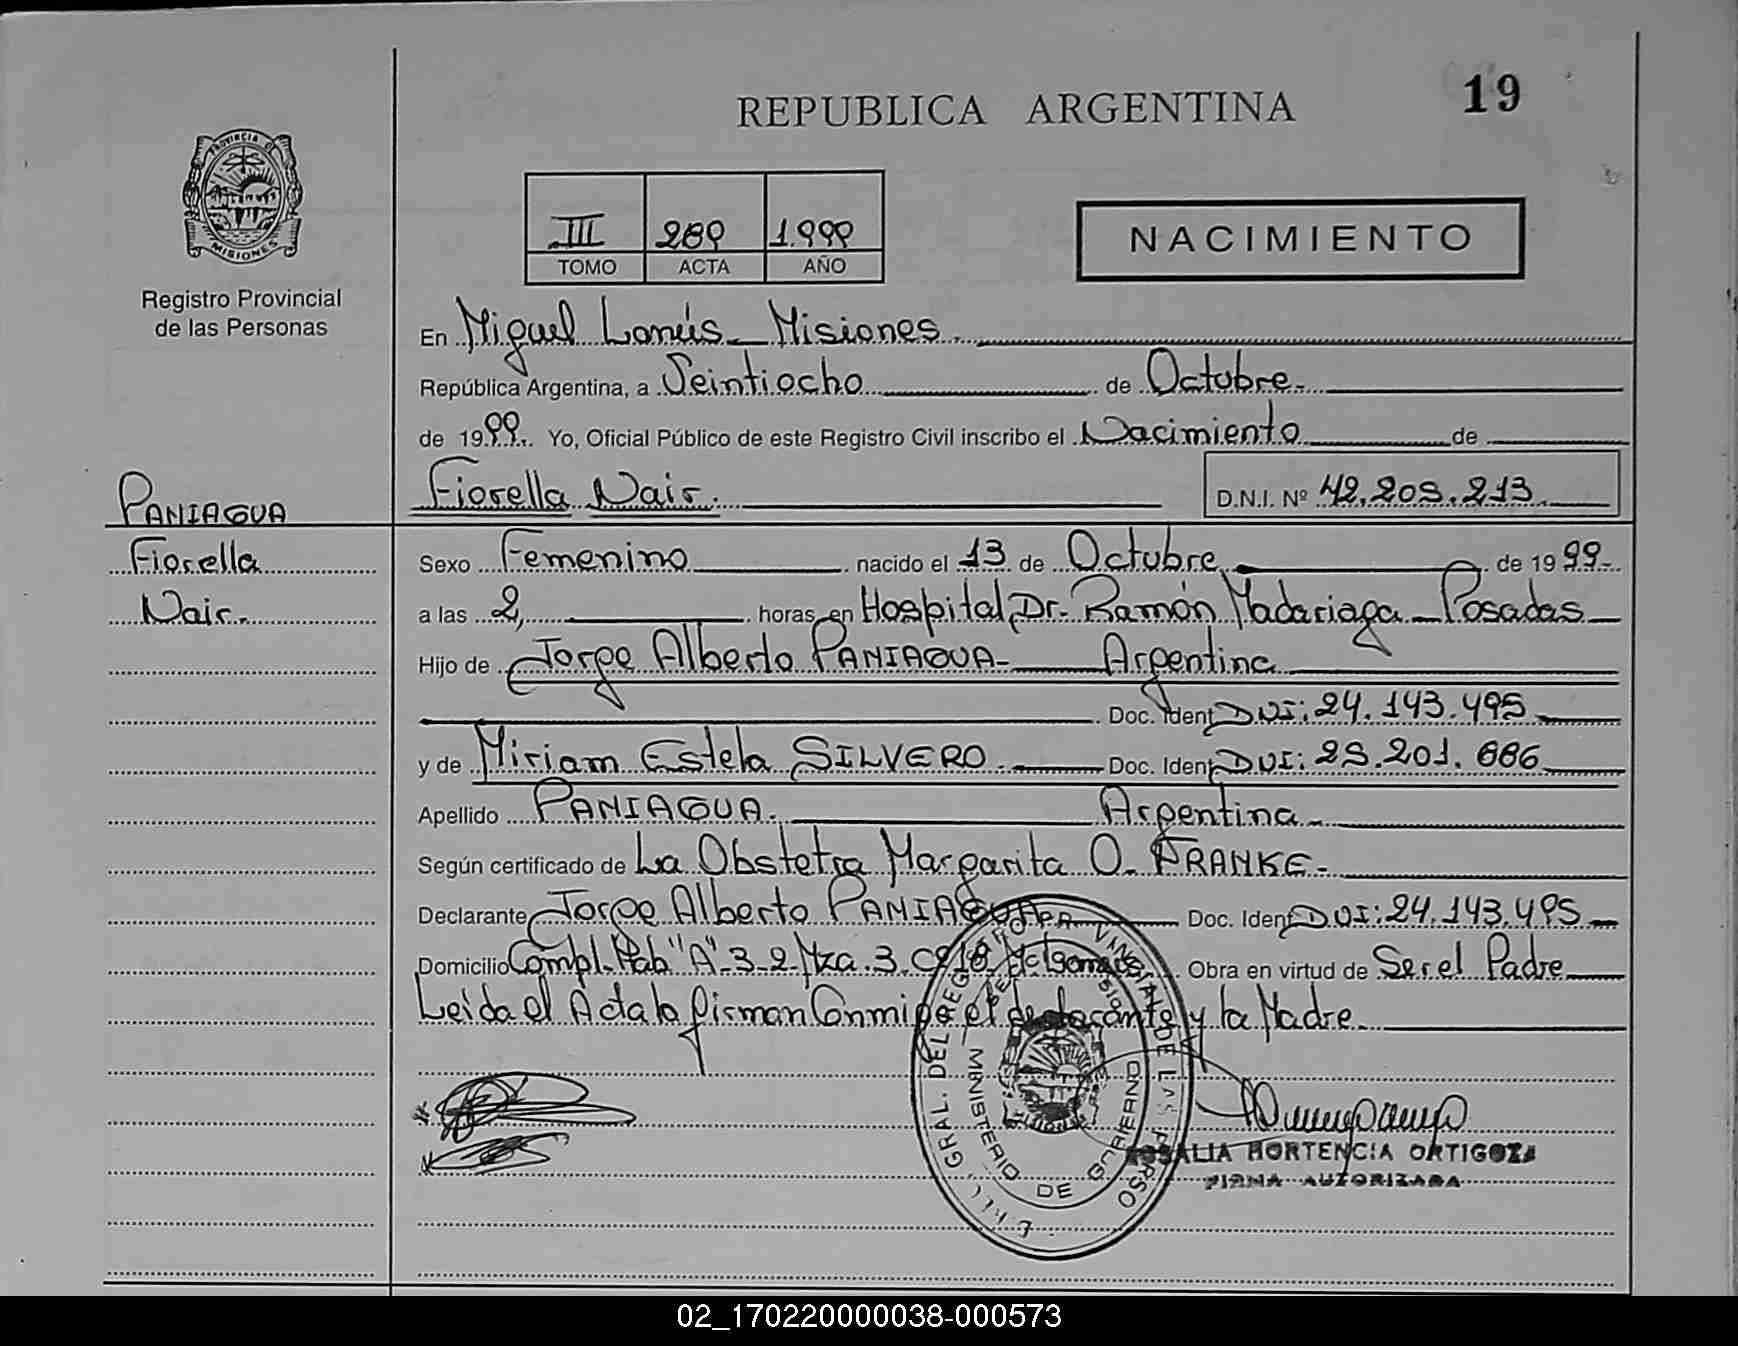 REPUBLICA ARGENTINA
19
PROVINCIA DE MISIONES
Registro Provincial
de las Personas
III 289 1.999
TOMO ACTA AÑO
NACIMIENTO
En Miguel Lanús - Misiones
República Argentina, a Veintiocho de Octubre
de 1999. Yo, Oficial Público de este Registro Civil inscribo el Nacimiento de
PANIAGUA
Fiorella Nair.
D.N.I. Nº 42.205.213
Fiorella
Sexo Femenino nacido el 13 de Octubre de 1999
Nair.
a las 2, horas en Hospital Dr. Ramón Madariaga - Posadas
Hijo de Jorge Alberto PANIAGUA - Argentina
Doc. Ident DNI: 24.143.495
y de Miriam Estela SILVERO. Doc. Ident DNI: 25.201.686
Apellido PANIAGUA. Argentina
Según certificado de La Obstetra Margarita O. FRANKE
Declarante Jorge Alberto PANIAGUA Doc. Ident DNI: 24.143.495
Domicilio Compl. Hab "A" 3-2 Mza. 3 Obra en virtud de Ser el Padre
Leída el Acta la firman Conmigo el declarante y la Madre.
GRAL. DEL REGISTRO PROVINCIAL DE LAS PERSO
MINISTERIO DE GOBIERNO
ROSALIA HORTENCIA ORTIGOZA
FIRMA AUTORIZADA
02_170220000038-000573